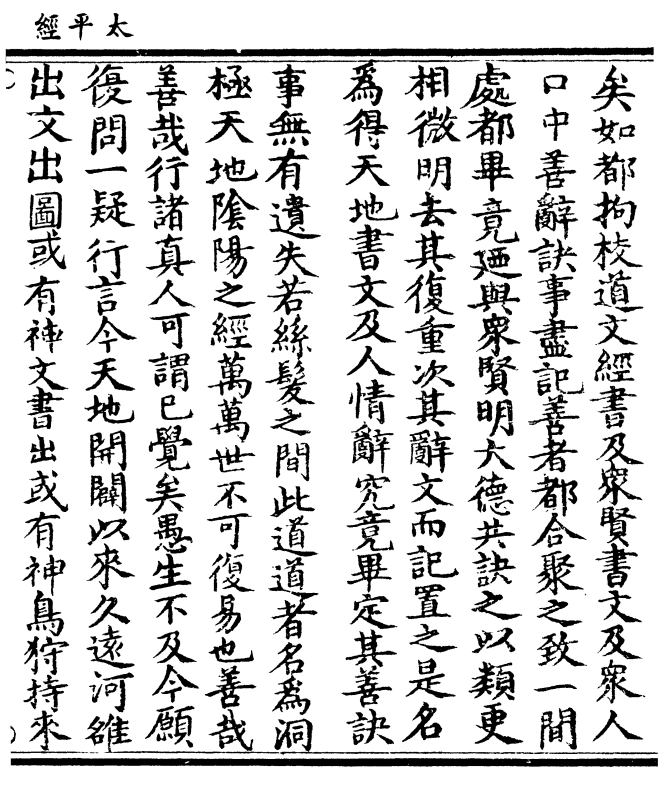 太平經
矣如都拘校道文經書及眾賢書文及眾人
口中善辭訣事盡記善者都合聚之致一間
處都畢竟迺與眾賢明大德共訣之以類更
相微明去其復重次其辭文而記置之是名
為得天地書文及人情辭究竟畢定其善訣
事無有遺失若絲髮之間此道道者名為洞
極天地陰陽之經萬萬世不可復易也善哉
善哉行諸真人可謂已覺矣愚生不及今願
復問一疑行言今天地開闢以來久遠河雒
出文出圖或有神文書出或有神鳥狩持來